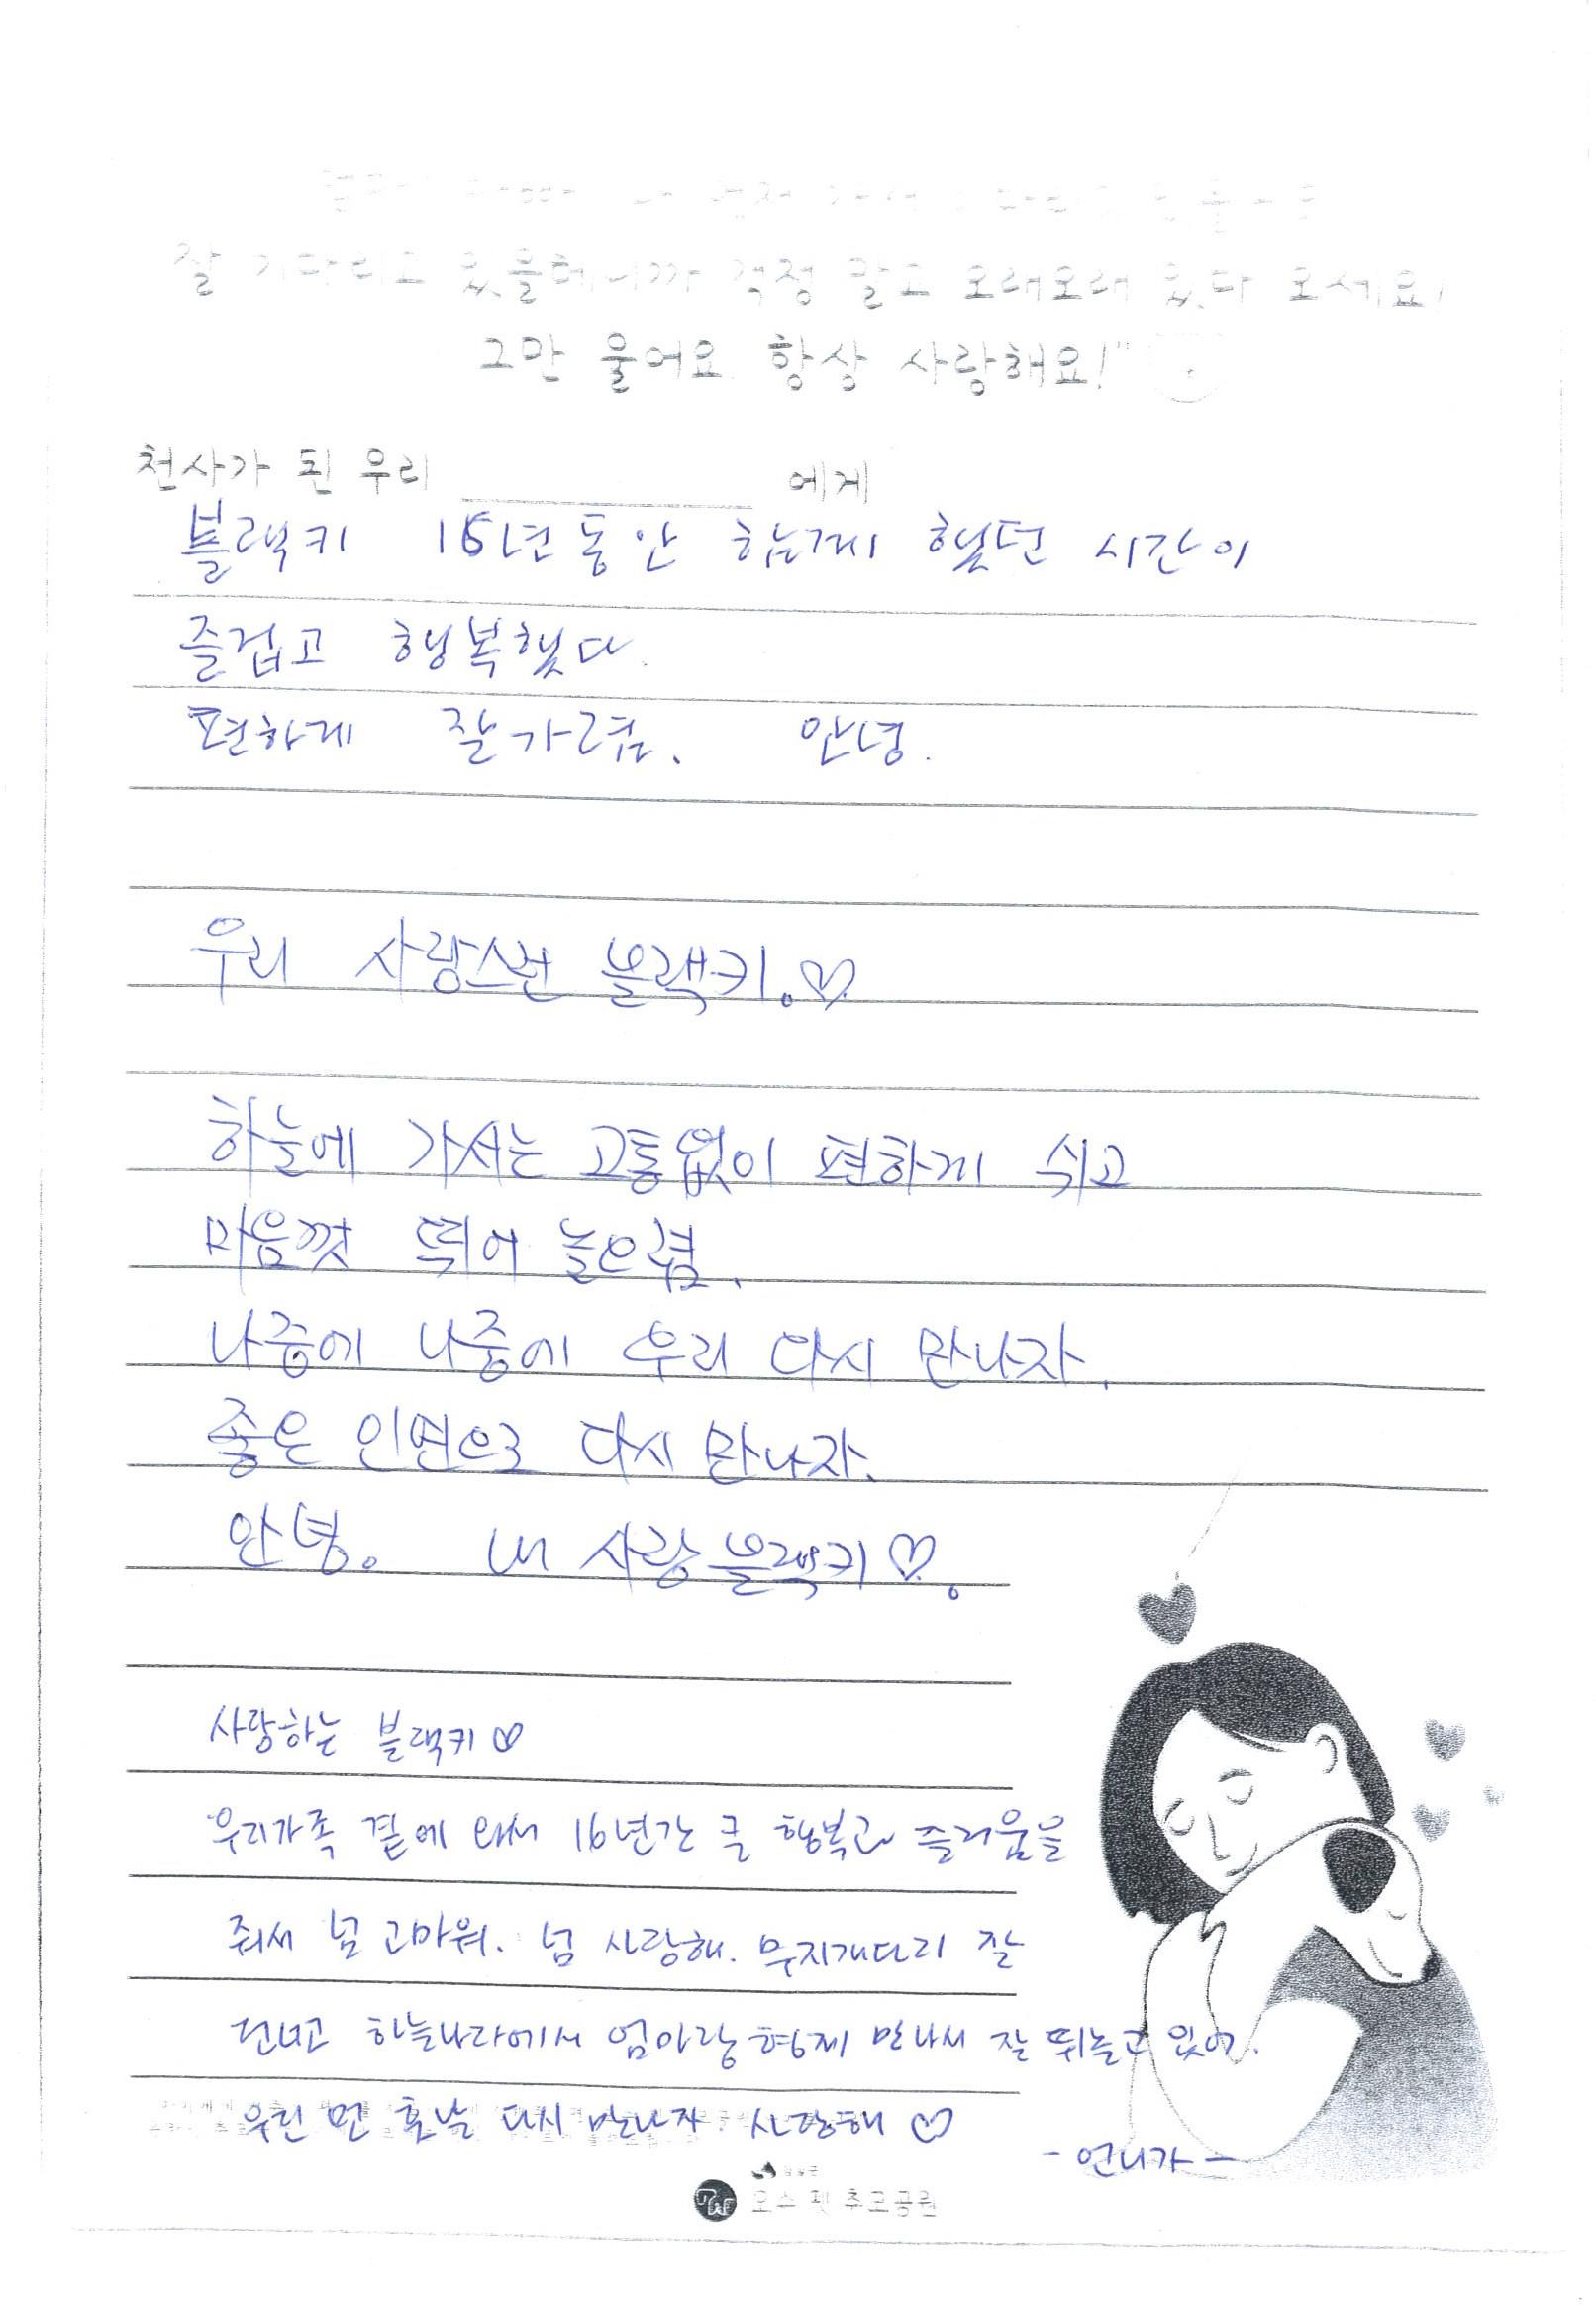 잘 기다리고 있을테니까 걱정 말고 오래오래 있다 오세요!
그만 울어요 항상 사랑해요!"
천사가 된 우리 에게
블랙키 16년동안 함께 했던 시간이
즐겁고 행복했다.
편하게 잘가렴. 안녕.
우리 사랑스런 블랙키.♡
하늘에 가서는 고통없이 편하게 쉬고
마음껏 뛰어 놀으렴.
나중에 나중에 우리 다시 만나자.
좋은 인연으로 다시 만나자.
안녕. 내 사랑 블랙키♡.
사랑하는 블랙키♡
우리가족 곁에 와서 16년간 큰 행복과 즐거움을
줘서 넘 고마워. 넘 사랑해. 무지개다리 잘
건너고 하늘나라에서 엄마랑 형제 만나서 잘 뛰놀고 있어.
우린 먼 훗날 다시 만나자 사랑해♡
- 언니가 -
PW 펫 추모공원